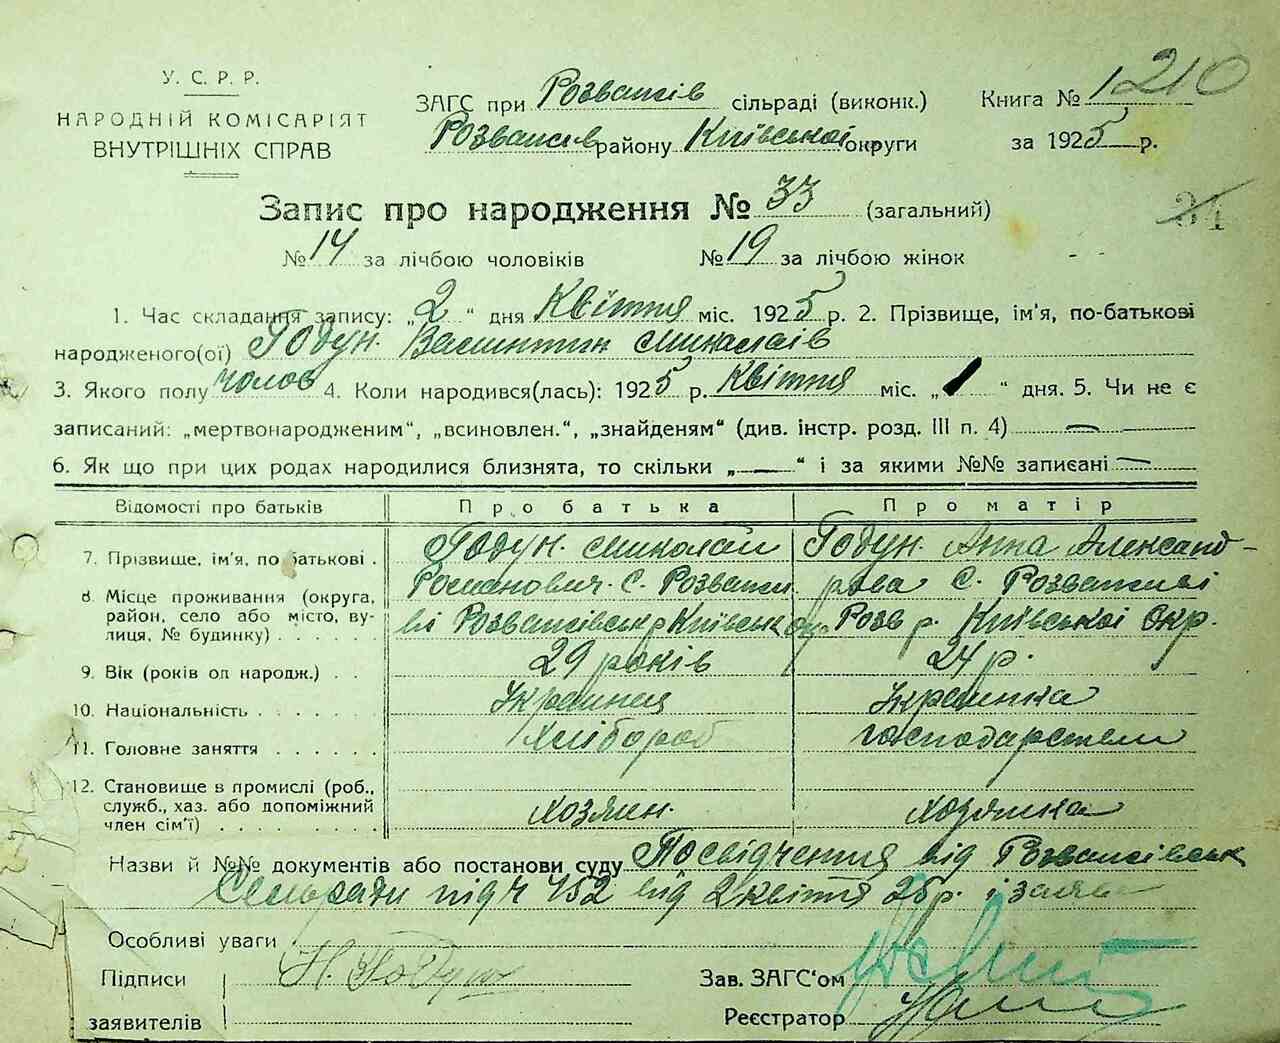 У. С. Р. Р.
НАРОДНІЙ КОМІСАРІЯТ
ВНУТРІШНІХ СПРАВ
ЗАГС при Розважів сільраді (виконк.) Книга № 1210
Розважів району Київської округи за 1925 р.
Запис про народження № 33 (загальний)
34
№ 14 за лічбою чоловіків № 19 за лічбою жінок
1. Час складання запису: „2“ дня Квітня міс. 1925 р. 2. Прізвище, ім'я, по-батькові
народженого(ої) Годун. Валинтин Миколаїв
3. Якого полу чолов 4. Коли народився(лась): 1925 р. Квітня міс. „1“ дня. 5. Чи не є
записаний: „мертвонародженим“, „всиновлен.“, „знайденям“ (див. інстр. розд. III п. 4) —
6. Як що при цих родах народилися близнята, то скільки „—“ і за якими №№ записані —
Відомості про батьків Про батька Про матір
7. Прізвище, ім'я, по батькові . Годун. Миколай Годун. Анна Александ-
Романович. С. Розважи рова С. Розваживі
8. Місце проживання (округа, район, село або місто, вулиця, № будинку) . . . . . ві Розважівськ р Київськ окр. Розв р. Київської Окр.
9. Вік (років од народж.) . . 29 років 24 р.
10. Національність . . . . . . . Українец Українка
11. Головне заняття . . . . . . Хлібороб господарстели
12. Становище в промислі (роб.,
служб., хаз. або допоміжний
член сім'ї) . . . . . . . . . Хозяин. хозяика
Назви й №№ документів або постанови суду Посвідчення від Розважівськ
Сельради під ч 452 від 2 квітня 25 р. і заява
Особливі уваги
Підписи Н. Годун Зав. ЗАГС‘ом
заявителів Реєстратор